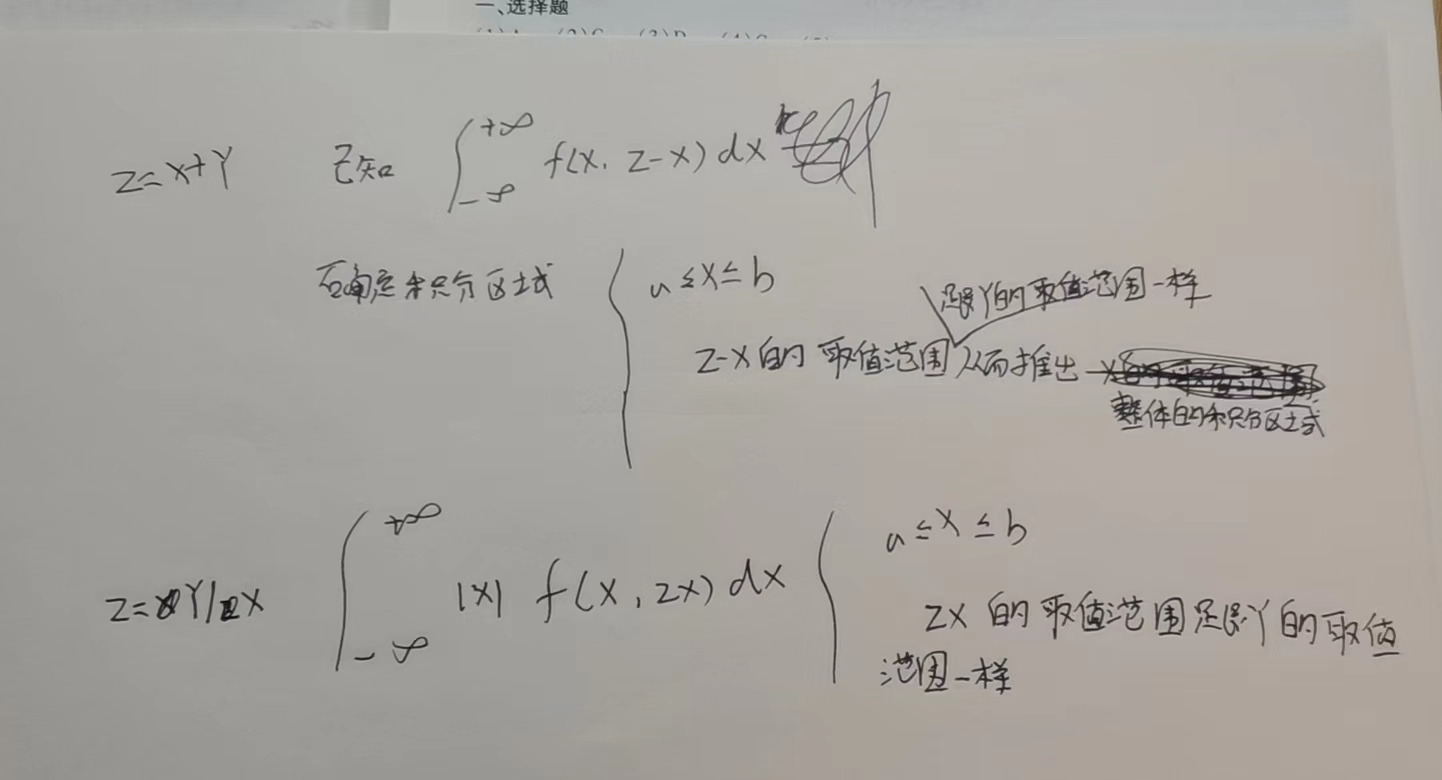 一、选择题
Z=X+Y 已知 ∫_{-∞}^{+∞} f(x, z-x) dx
确定积分区域 { a ≤ x ≤ b
跟Y的取值范围一样
z-x的取值范围 从而推出
整体的积分区域
Z=Y/X ∫_{-∞}^{+∞} |x| f(x, zx) dx { a ≤ x ≤ b
zx 的取值范围是跟Y的取值
范围一样